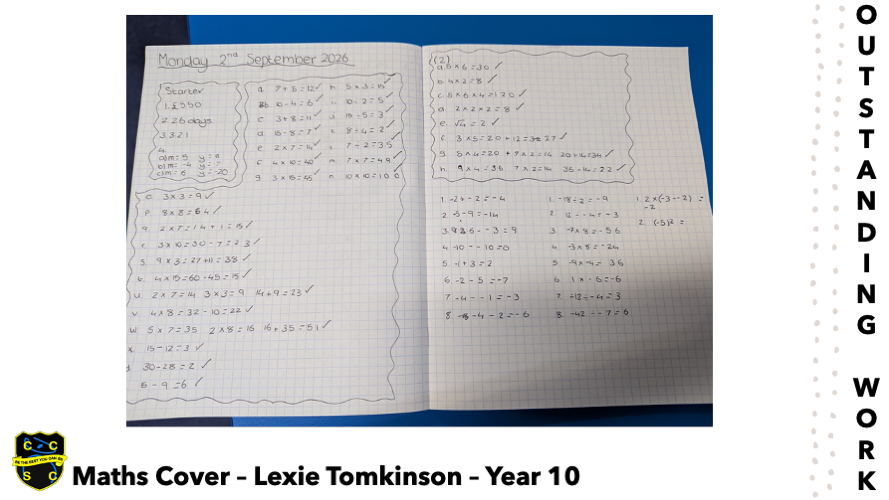 Monday 2nd September 2026
Starter
1. £550
2. 26 days
3. 3.21
4.
a) m= 5 y=
b) m= -4 y=
c) m= 6 y= -20
a. 7+5=12✓
b 10-4=6✓
c 3+8=11✓
d 15-8=7✓
e 2×7=14✓
f 4×10=40✓
g 3×15=45✓
h 5×3=15✓
i. 10÷2=5✓
j 15÷5=3✓
8÷4=2✓
7÷2=3.5
m 7×7=49✓
n 10×10=100
o. 3×3=9✓
p. 8×8=64✓
q. 2×7=14+1=15✓
r. 3×10=30-7=23✓
s. 9×3=27+11=38✓
t. 4×15=60-45=15✓
u. 2×7=14 3×3=9 14+9=23✓
v. 4×8=32-10=22✓
w. 5×7=35 2×8=16 16+35=51✓
x. 15-12=3✓
30-28=2✓
-9=6✓
(2)
a. 5×6=30✓
b. 4×2=8✓
c. 5×6×4=120✓
d. 2×2×2=8✓
e. √4=2✓
f. 3×5= +12= 27✓
g. 5×4=20 + 7×2=14 20+14=34✓
h. 9×4=36 7×2=14 36-14=22✓
1. -2+-2=-4
2. -5-9=-14
3. 6--3=9
4. -10--10=0
5. -1+3=2
6. -2-5=-7
7. -4--1=-3
8. -4-2=-6
1. -18÷2=-9
2. 12÷-4=-3
3. -7×8=-56
4. -3×8=-24
5. -9×-4=36
6. 1×-6=-6
7. -12÷-4=3
8. -42÷-7=6
1. 2×(-3--2)=
-2
2. (-5)²=
OUTSTANDING WORK
C C
BE THE BEST YOU CAN BE
S C
Maths Cover – Lexie Tomkinson – Year 10